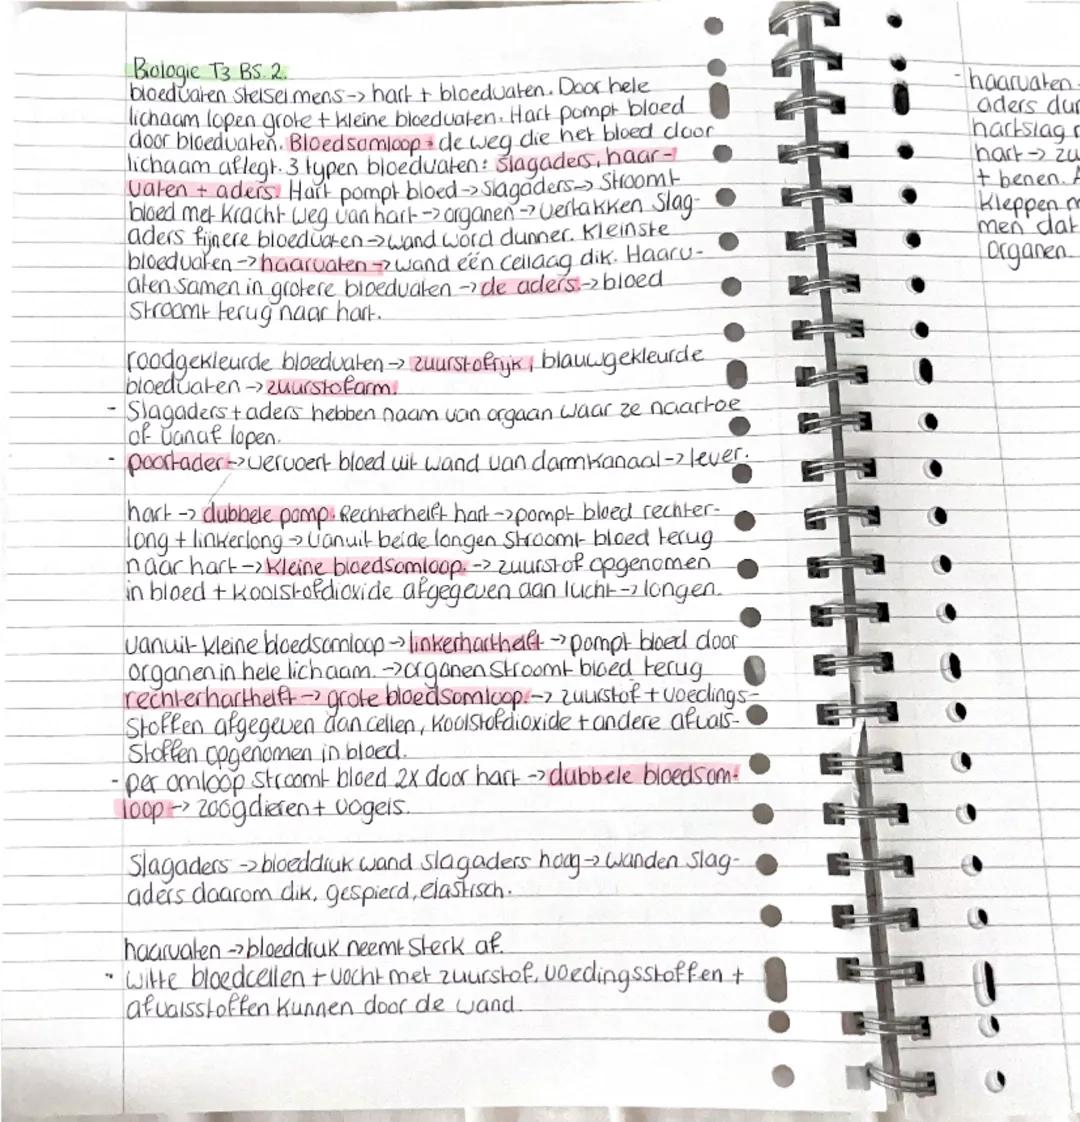 Biologie T3 BS. 2.
bloedvaten stelsel mens -> hart + bloedvaten. Door hele
lichaam lopen grote + kleine bloedvaten. Hart pompt bloed
door bloedvaten. Bloedsomloop -> de weg die het bloed door
lichaam aflegt. 3 typen bloedvaten: Slagaders, haar-
vaten + aders. Hart pompt bloed -> Slagaders -> Stroomt
bloed met kracht weg van hart -> organen -> vertakken Slag-
aders fijnere bloedvaten -> wand word dunner. Kleinste
bloedvaten -> haarvaten -> wand één cellaag dik. Haarv-
aten samen in grotere bloedvaten -> de aders. -> bloed
Stroomt terug naar hart.
roodgekleurde bloedvaten -> zuurstofrijk, blauwgekleurde
bloedvaten -> zuurstofarm.
- Slagaders + aders hebben naam van orgaan waar ze naartoe
of vanaf lopen.
- poortader -> vervoert bloed uit wand van darmkanaal -> lever.
hart -> dubbele pomp. Rechterhelft hart -> pompt bloed rechter-
long + linkerlong -> vanuit beide longen Stroomt bloed terug
naar hart -> kleine bloedsomloop. -> zuurstof opgenomen
in bloed + koolstofdioxide afgegeven aan lucht -> longen.
vanuit kleine bloedsomloop -> linkerharthelft -> pompt bloed door
organen in hele lichaam. -> organen Stroomt bloed terug
rechterharthelft -> grote bloedsomloop. -> zuurstof + voedings-
Stoffen afgegeven aan cellen, koolstofdioxide + andere afvals-
Stoffen opgenomen in bloed.
- per omloop stroomt bloed 2x door hart -> dubbele bloedsom-
loop -> zoogdieren + vogels.
Slagaders -> bloeddruk wand slagaders hoog -> wanden Slag-
aders daarom dik, gespierd, elastisch.
haarvaten -> bloeddruk neemt Sterk af.
- witte bloedcellen + vocht met zuurstof, voedingsstoffen +
afvalsstoffen kunnen door de wand.
- haarvaten
aders
hartslag
hart ->
+ benen.
kleppen
men dat
organen.